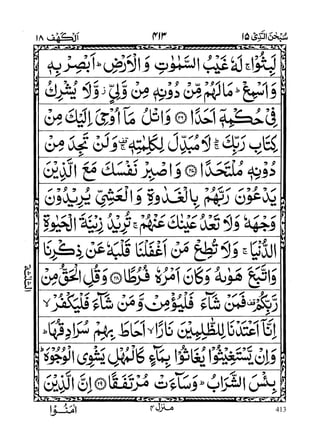 سُبْحٰنَ الَّذِیْ ١٥ ٤١٣ اَلْكَهْف ١٨
لَبِثُوْا ۚ لَهٗ غَیْبُ السَّمٰوٰتِ وَ الْاَرْضِ ؕ اَبْصِرْ بِهٖ
وَ اَسْمِعْ ؕ مَا لَهُمْ مِّنْ دُوْنِهٖ مِنْ وَّلِیٍّ ؗ وَّ لَا یُشْرِكُ
فِیْ حُكْمِهٖۤ اَحَدًا ﴿٢٦﴾ وَ اتْلُ مَاۤ اُوْحِیَ اِلَیْكَ مِنْ
كِتَابِ رَبِّكَ ؕ ۚ لَا مُبَدِّلَ لِكَلِمٰتِهٖ ۚ۫ وَ لَنْ تَجِدَ مِنْ
دُوْنِهٖ مُلْتَحَدًا ﴿٢٧﴾ وَ اصْبِرْ نَفْسَكَ مَعَ الَّذِیْنَ
یَدْعُوْنَ رَبَّهُمْ بِالْغَدٰوةِ وَ الْعَشِیِّ یُرِیْدُوْنَ
وَجْهَهٗ وَ لَا تَعْدُ عَیْنٰكَ عَنْهُمْ ۚ تُرِیْدُ زِیْنَةَ الْحَیٰوةِ
الدُّنْیَا ۚ وَ لَا تُطِعْ مَنْ اَغْفَلْنَا قَلْبَهٗ عَنْ ذِكْرِنَا
وَ اتَّبَعَ هَوٰىهُ وَ كَانَ اَمْرُهٗ فُرُطًا ﴿٢٨﴾ وَ قُلِ الْحَقُّ مِنْ
رَّبِّكُمْ ۫ فَمَنْ شَآءَ فَلْیُؤْمِنْ وَّ مَنْ شَآءَ فَلْیَكْفُرْ ۙ
اِنَّاۤ اَعْتَدْنَا لِلظّٰلِمِیْنَ نَارًا ۙ اَحَاطَ بِهِمْ سُرَادِقُهَا ؕ
وَ اِنْ یَّسْتَغِیْثُوْا یُغَاثُوْا بِمَآءٍ كَالْمُهْلِ یَشْوِی الْوُجُوْهَ ؕ
بِئْسَ الشَّرَابُ ؕ وَ سَآءَتْ مُرْتَفَقًا ﴿٢٩﴾ اِنَّ الَّذِیْنَ
اٰمَنُوْا منزل ٤ 413